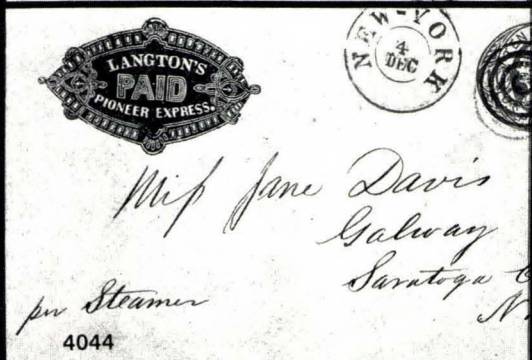 LANGTON'S
PAID
PIONEER EXPRESS.
NEW-YORK
4
DEC
Miſs Jane Davis
Galway
Saratoga C
N
per Steamer
4044